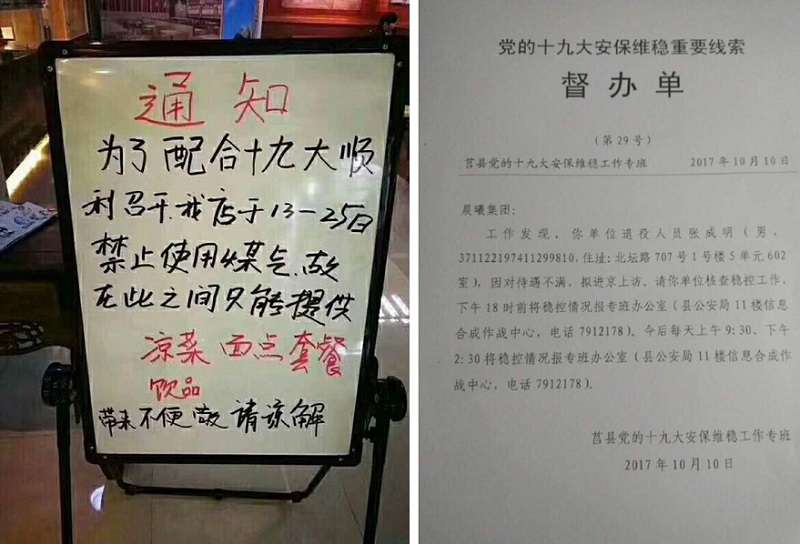 通知
为了配合十九大顺
利召开,我店于13-25日
禁止使用煤气,故
在此之间只能提供
凉菜 面点 套餐
饮品
带来不便敬请谅解
党的十九大安保维稳重要线索
督办单
(第29号)
莒县党的十九大安保维稳工作专班 2017年10月10日
晨曦集团:
工作发现,你单位退役人员张成明(男,
371122197411299810,住址:北坛路707号1号楼5单元602
室),因对待遇不满,拟进京上访。请你单位核查稳控工作,
下午18时前将稳控情况报专班办公室(县公安局11楼信息
合成作战中心,电话7912178)。今后每天上午9:30、下午
2:30将稳控情况报专班办公室(县公安局11楼信息合成作
战中心,电话7912178)。
莒县党的十九大安保维稳工作专班
2017年10月10日